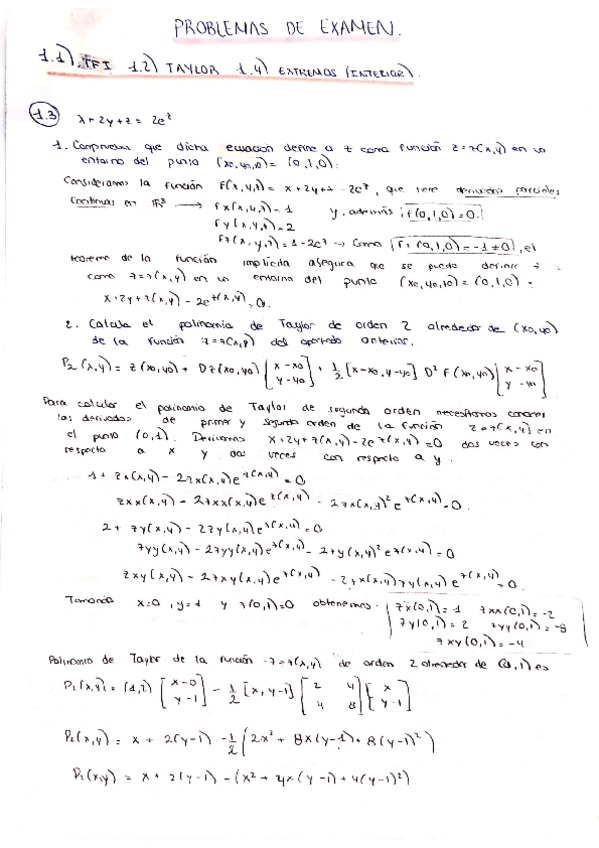 PROBLEMAS DE EXAMEN.
1.1) TFI 1.2) TAYLOR 1.4) EXTREMOS (INTERIOR).
1.3 x + 2y + z = 2e^z
1. Comprueba que dicha ecuación define a z como función z = z(x,y) en un
entorno del punto (x0,y0,z0) = (0,1,0):
Consideramos la función F(x,y,z) = x + 2y + z - 2e^z, que tiene derivadas parciales
continuas en R³ → Fx(x,y,z) = 1 y, además, F(0,1,0) = 0.
Fy(x,y,z) = 2
Fz(x,y,z) = 1 - 2e^z → Como Fz(0,1,0) = -1 ≠ 0, el
teorema de la función implícita asegura que se puede definir z
como z = z(x,y) en un entorno del punto (x0,y0,z0) = (0,1,0)
x + 2y + z(x,y) - 2e^z(x,y) = 0.
2. Calcula el polinomio de Taylor de orden 2 alrededor de (x0,y0)
de la función z = z(x,y) del apartado anterior.
P2(x,y) = z(x0,y0) + Dz(x0,y0) [x - x0 y - y0] + 1/2 [x - x0, y - y0] D² F(x0,y0) [x - x0 y - y0]
Para calcular el polinomio de Taylor de segundo orden necesitamos conocer
las derivadas de primer y segundo orden de la función z = z(x,y) en
el punto (0,1). Derivamos x + 2y + z(x,y) - 2e^z(x,y) = 0 dos veces con
respecto a x y dos veces con respecto a y.
1 + zx(x,y) - 2zx(x,y)e^z(x,y) = 0
zxx(x,y) - 2zxx(x,y)e^z(x,y) - 2zx(x,y)² e^z(x,y) = 0.
2 + zy(x,y) - 2zy(x,y)e^z(x,y) = 0
zyy(x,y) - 2zyy(x,y)e^z(x,y) - 2zy(x,y)² e^z(x,y) = 0
zxy(x,y) - 2zxy(x,y)e^z(x,y) - 2zx(x,y)zy(x,y) e^z(x,y) = 0.
Tomando x=0, y=1 y z(0,1)=0 obtenemos: zx(0,1) = 1 zxx(0,1) = -2
zy(0,1) = 2 zyy(0,1) = -8
zxy(0,1) = -4
Polinomio de Taylor de la función z = z(x,y) de orden 2 alrededor de (0,1) es
P2(x,y) = (1,2) [x - 0 y - 1] - 1/2 [x, y-1] [2 4 4 8] [x y - 1]
P2(x,y) = x + 2(y-1) - 1/2 (2x² + 8x(y-1) + 8(y-1)²)
P2(x,y) = x + 2(y-1) - (x² + 4x(y-1) + 4(y-1)²)